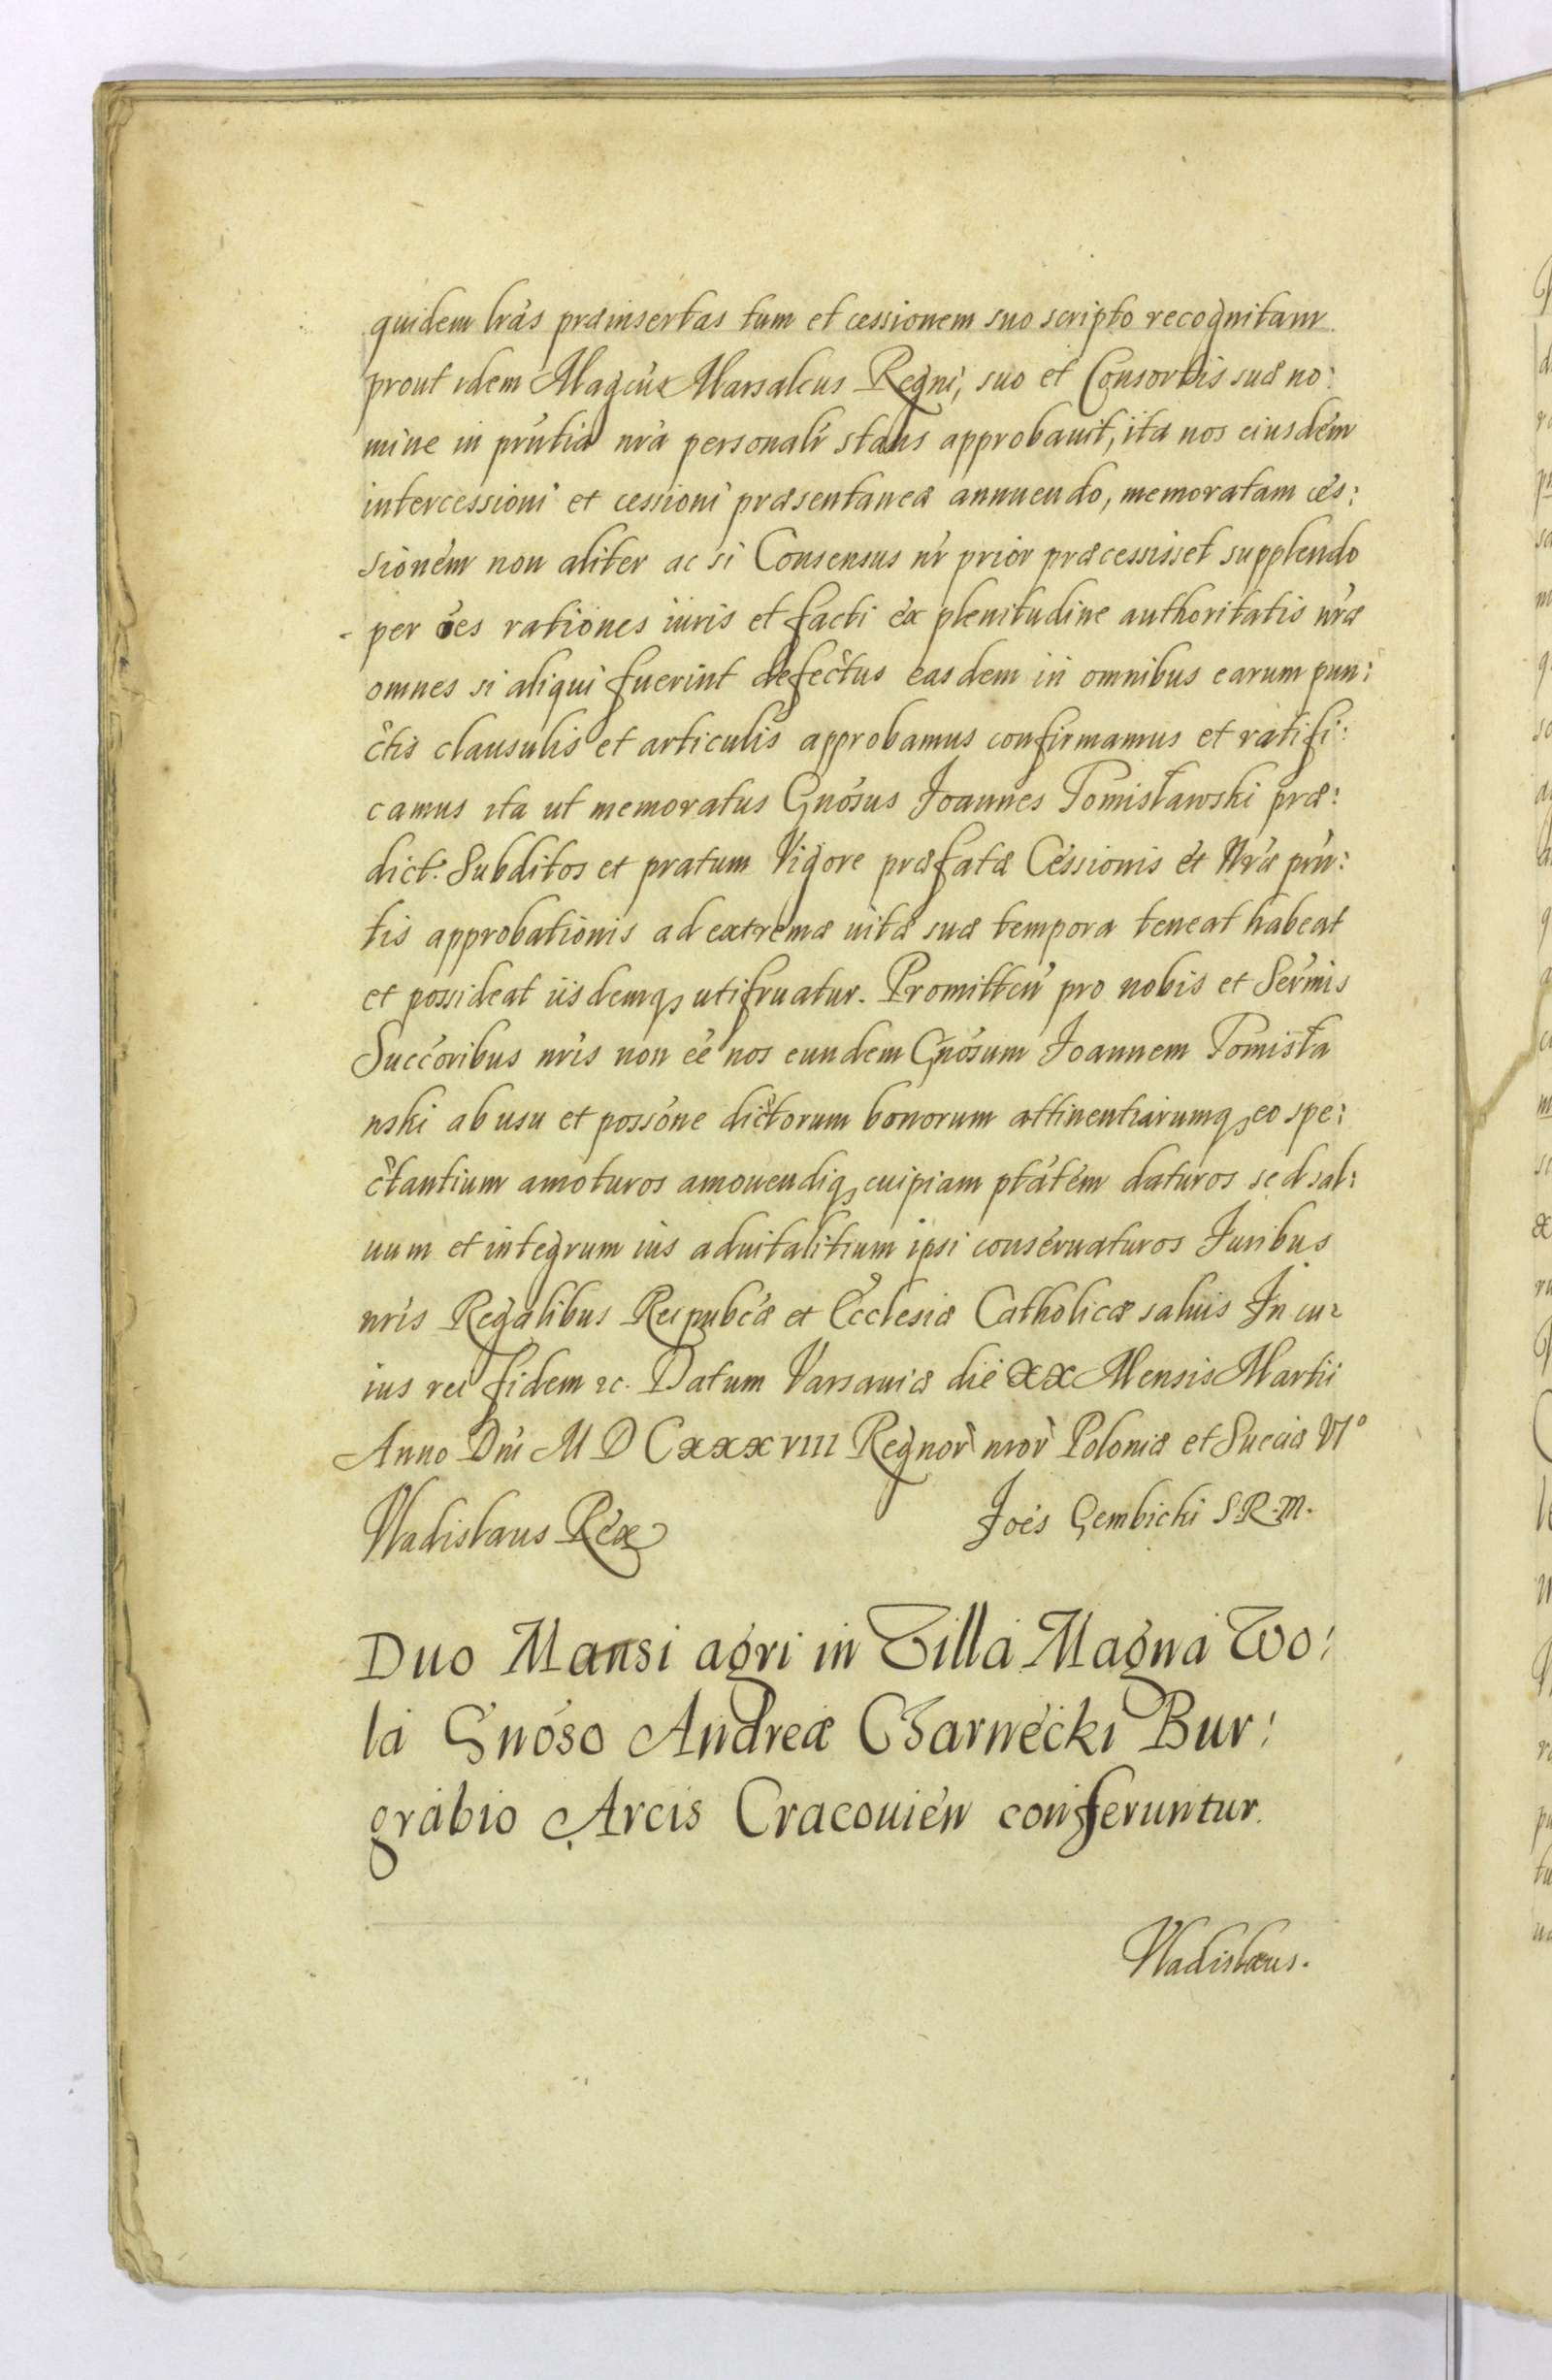 quidem lrás præinsertas tum et cessionem suo scripto recognitam
prout idem Magcus Marsalcus Regni, suo et Consortis suæ no:
mine in prńtia nrá personalr stans approbauit, ita nos eiusdem
intercessioni et cessioni præsentaneæ annuendo, memoratam ces:
sionem non aliter ac si Consensus nŕ prior præcessisset supplendo
per óes rationes iuris et facti ex plenitudine authoritatis nŕæ
omnes si aliqui fuerint defectus easdem in omnibus earum pun:
ctis clausulis et articulis approbamus confirmamus et ratifi:
camus ita ut memoratus Gnósus Joannes Tomisławski præ:
dict: Subditos et pratum Vigore præfatæ Cessionis et Nŕæ prń:
tis approbationis ad extrema uitæ suæ tempora teneat habeat
et possideat iisdemq utifruatur. Promitteń pro nobis et Serńis
Succóribus nŕis non eé nos eundem Gnósum Joannem Tomisła
wski ab usu et possóne dictorum bonorum attinentiarumq eo spe:
ctantium amoturos amouendiq cuipiam ptátem daturos sed sal:
uum et integrum ius aduitalitium ipsi conseruaturos Juribus
nŕis Regalibus Reipubcæ et Ecclesiæ Catholicæ saluis In cu-
ius rei fidem ec. Datum Varsauiæ die XX Mensis Martii
Anno Dńi M D CXXXVIII Regnor nror Poloniæ et Sueciæ VIº
Vladislaus Rex
Joés Gembicki S.R.M.
Duo Mansi agri in Villa Magna Wo:
la Gnóso Andreæ Czarnecki Bur:
grabio Arcis Cracouień conferuntur.
Vladislaus.